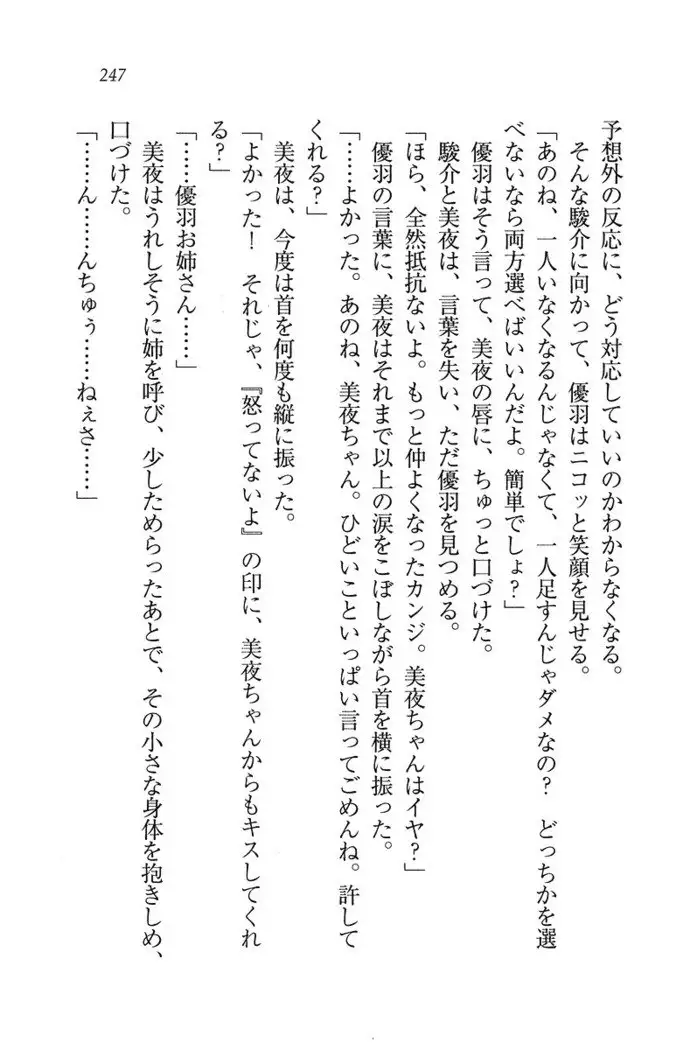 247
予想外の反応に、どう対応していいのかわからなくなる。
そんな駿介に向かって、優羽はニコッと笑顔を見せる。
「あのね、一人いなくなるんじゃなくて、一人足すんじゃダメなの？　どっちかを選
べないなら両方選べばいいんだよ。簡単でしょ？」
優羽はそう言って、美夜の唇に、ちゅっと口づけた。
駿介と美夜は、言葉を失い、ただ優羽を見つめる。
「ほら、全然抵抗ないよ。もっと仲よくなったカンジ。美夜ちゃんはイヤ？」
優羽の言葉に、美夜はそれまで以上の涙をこぼしながら首を横に振った。
「……よかった。あのね、美夜ちゃん。ひどいこといっぱい言ってごめんね。許して
くれる？」
美夜は、今度は首を何度も縦に振った。
「よかった！　それじゃ、『怒ってないよ』の印に、美夜ちゃんからもキスしてくれ
る？」
「……優羽お姉さん……」
美夜はうれしそうに姉を呼び、少しためらったあとで、その小さな身体を抱きしめ、
口づけた。
「……ん……んちゅぅ……ねぇさ……」